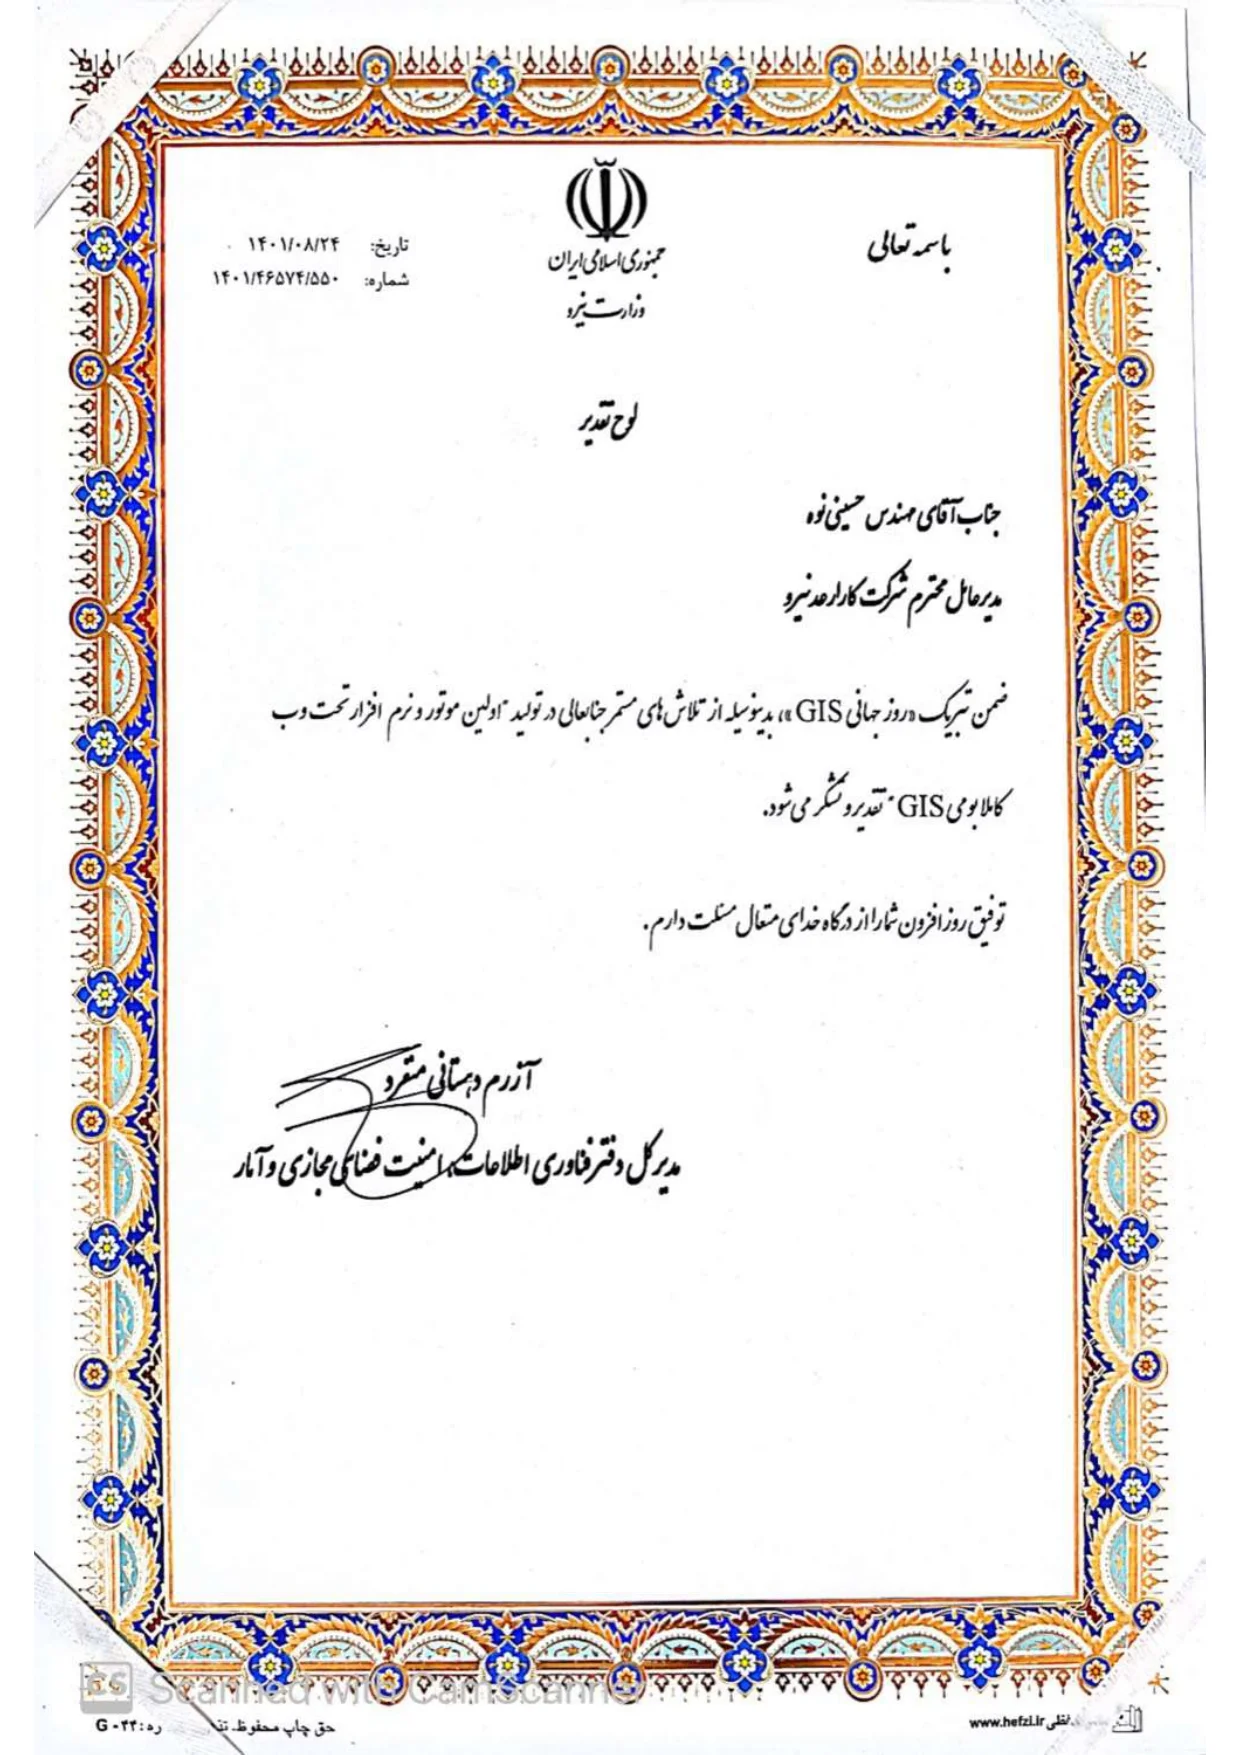 باسمه تعالی
جمهوری اسلامی ایران
وزارت نیرو
تاریخ: ۱۴۰۱/۰۸/۲۴
شماره: ۱۴۰۱/۴۶۵۷۴/۵۵۰
لوح تقدیر
جناب آقای مهندس حسینی نوه
مدیرعامل محترم شرکت کارارعد نیرو
ضمن تبریک «روز جهانی GIS»، بدینوسیله از تلاش های مستمر جنابعالی در تولید "اولین موتور و نرم افزار تحت وب
کاملا بومی GIS" تقدیر و تشکر می شود.
توفیق روز افزون شما را از درگاه خدای متعال مسئلت دارم.
آزرم دهستانی منفرد
مدیرکل دفتر فناوری اطلاعات، امنیت فضای مجازی و آمار
CS Scanned with CamScanner
حق چاپ محفوظ
G-۰۴۴
www.hefzi.ir